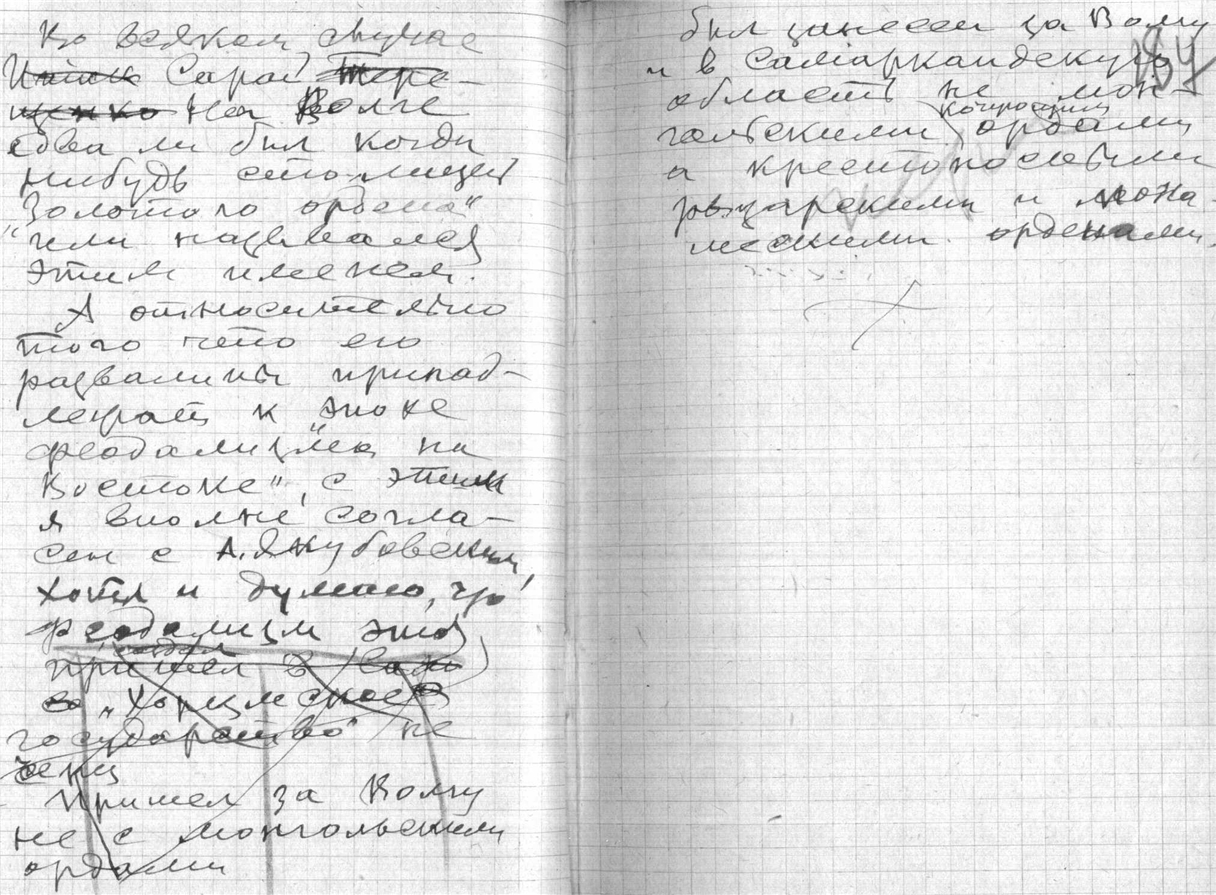 Во всяком случае
Сарай Тере-
щенко на Волге
едва ли был когда
нибудь столицей
"Золотого ордена"
"или назывался
этим именем.
А относительно
того что его
развалины принад-
лежат к "эпохе
феодализма на
Востоке", с этим
я вполне согла-
сен с А. Якубовским,
хотя и думаю, что
феодализм этот
пришел в
в "Хорезмское
государство" не
Пришел за Волгу
не с монгольскими
ордами
был занесен за Волгу
и в Самаркандскую
область не мон-
гольскими кочующими ордами
а крестоносными
рыцарскими и мона-
шескими орденами.